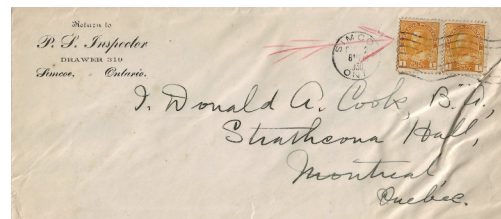 Return to
P. S. Inspector
DRAWER 319
Simcoe, Ontario.
SIMCOE
ONT
I. Donald A. Cook, B.A,
Strathcona Hall,
Montreal,
Quebec.